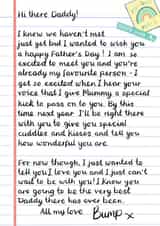 Hi there Daddy!
I know we haven't met
just yet but I wanted to wish you
a happy Father's Day! I am so
excited to meet you and you're
already my favourite person - I
get so excited when I hear your
voice that I give Mummy a special
kick to pass on to you. By this
time next year I'll be right there
with you to give you special
cuddles and kisses, and tell you
how wonderful you are.
For now though, I just wanted to
tell you I love you and I just can't
wait to be with you! I know you
are going to be the very best
Daddy there has ever been.
All my love
Bump x